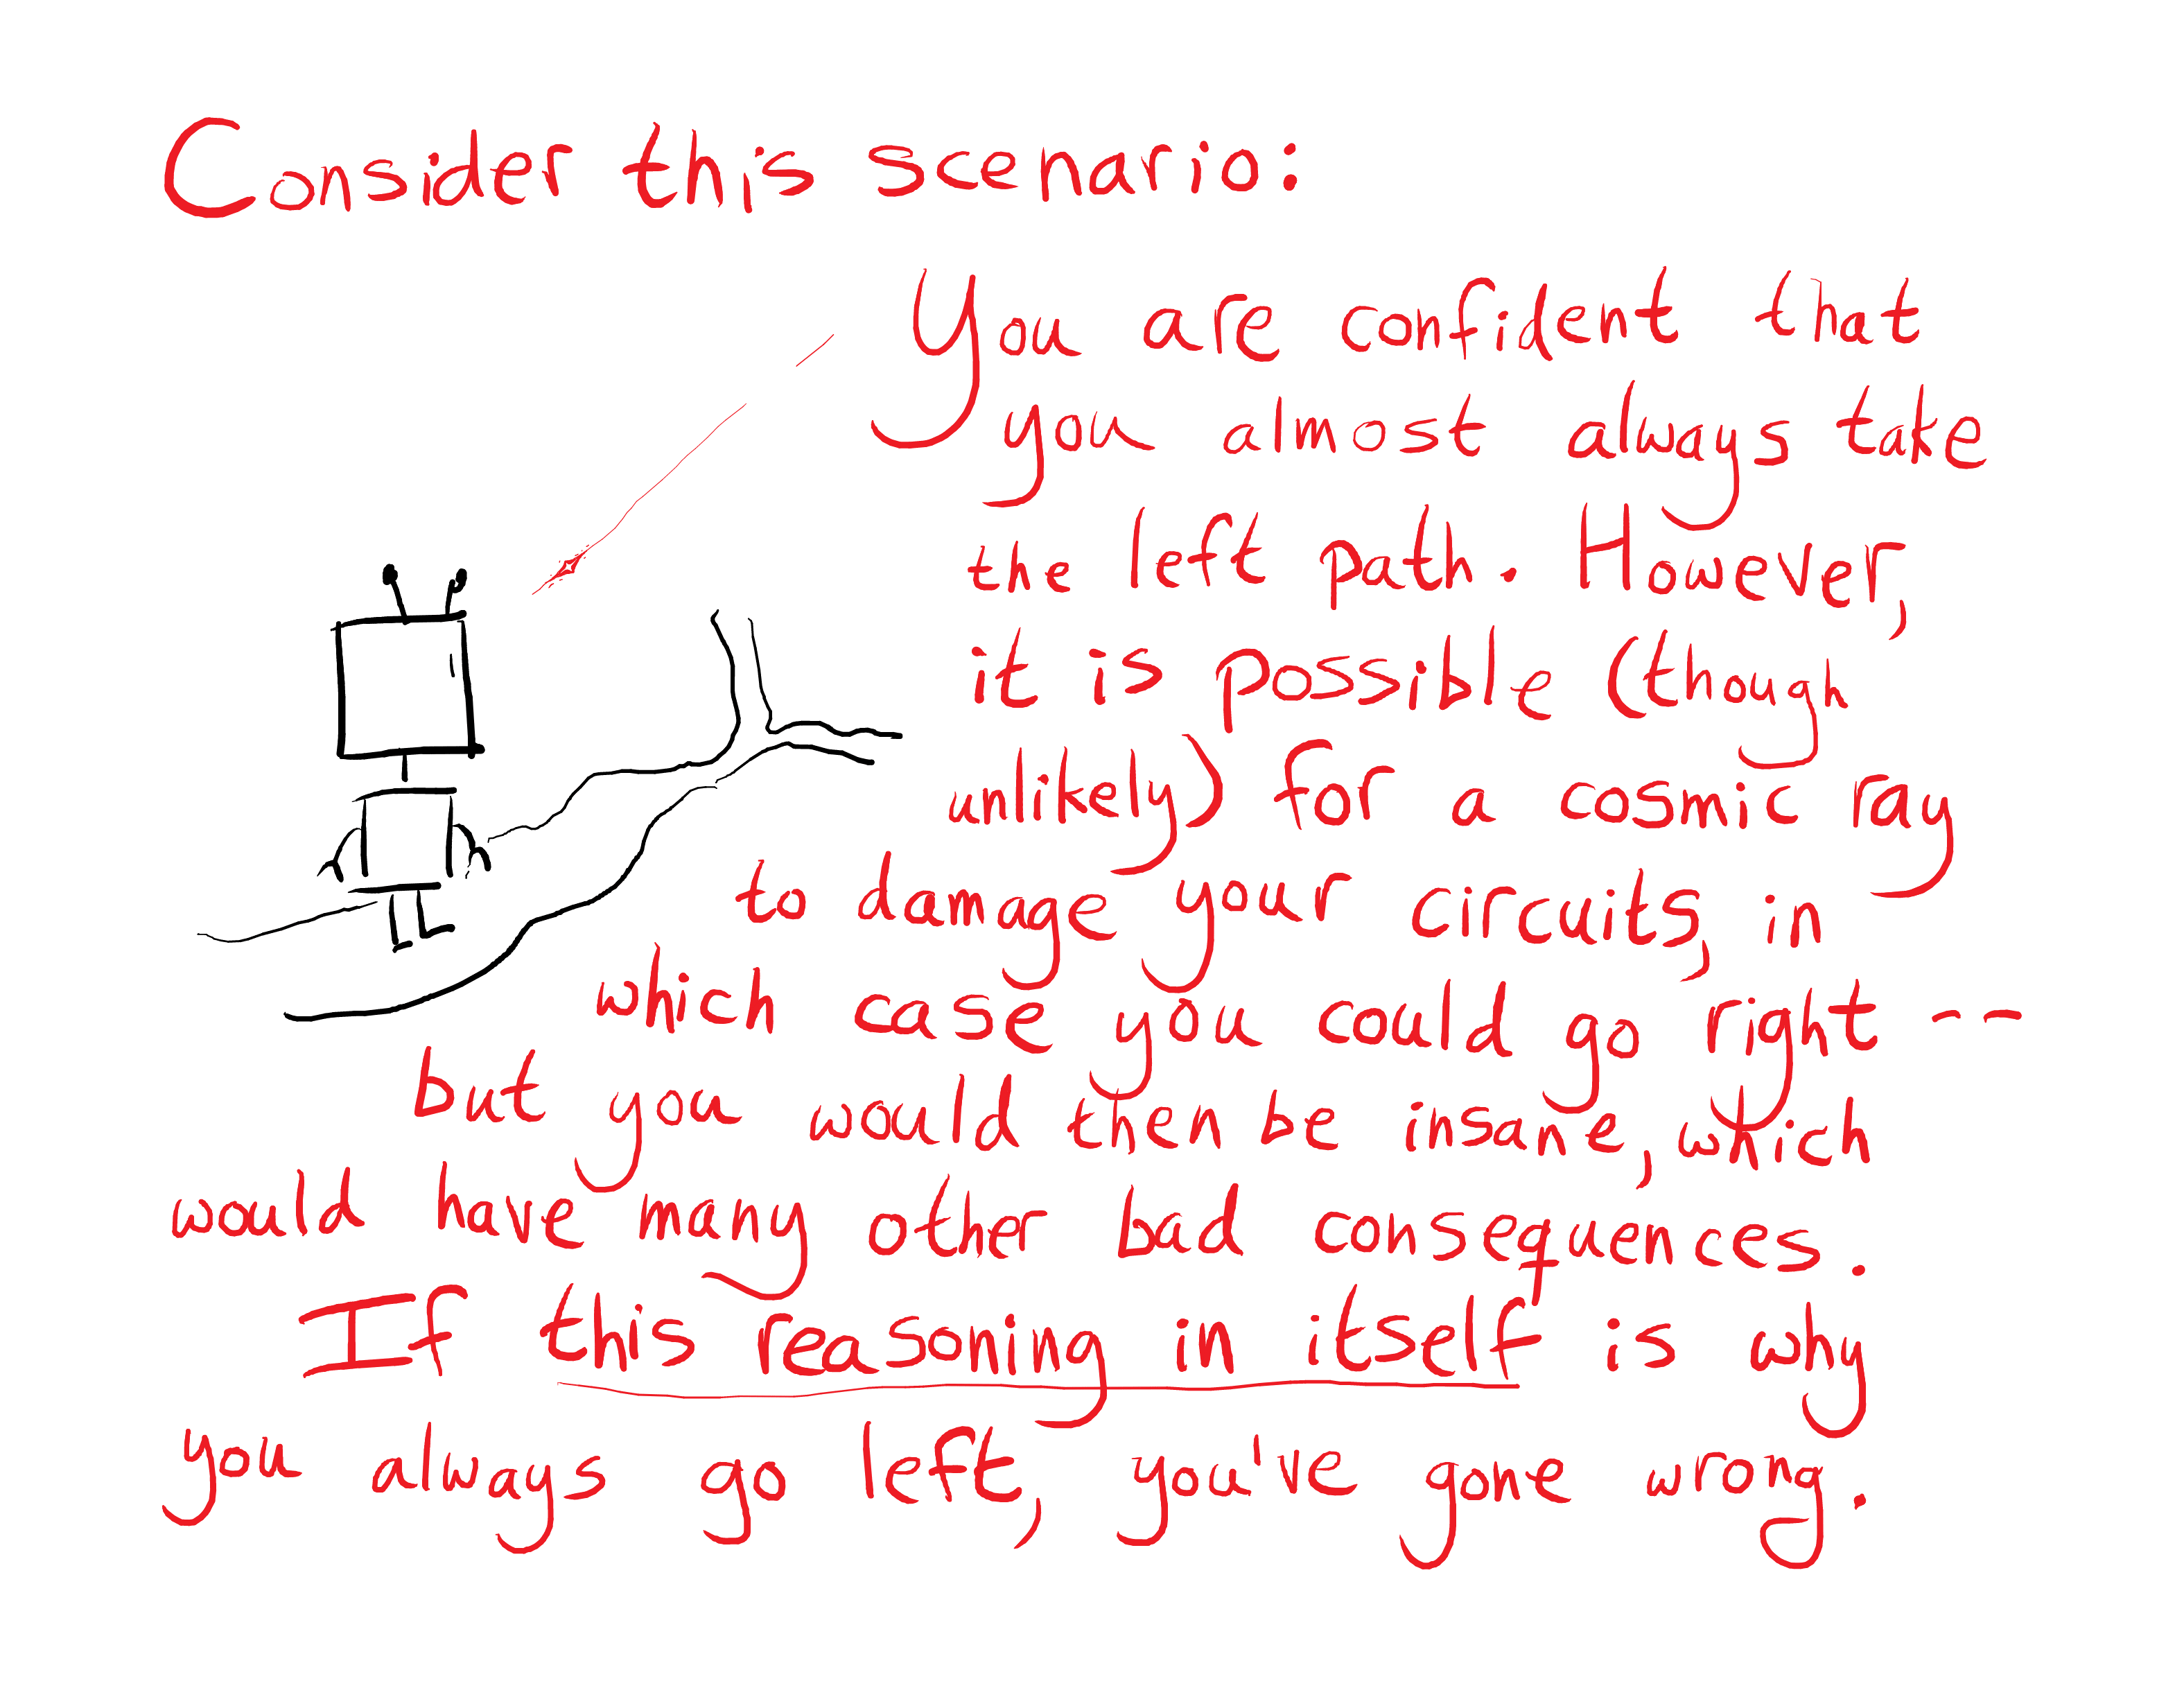 Consider this scenario:
You are confident that
you almost always take
the left path. However,
it is possible (though
unlikely) for a cosmic ray
to damage your circuits, in
which case you could go right --
but you would then be insane, which
would have many other bad consequences.
If this reasoning in itself is why
you always go left, you've gone wrong.